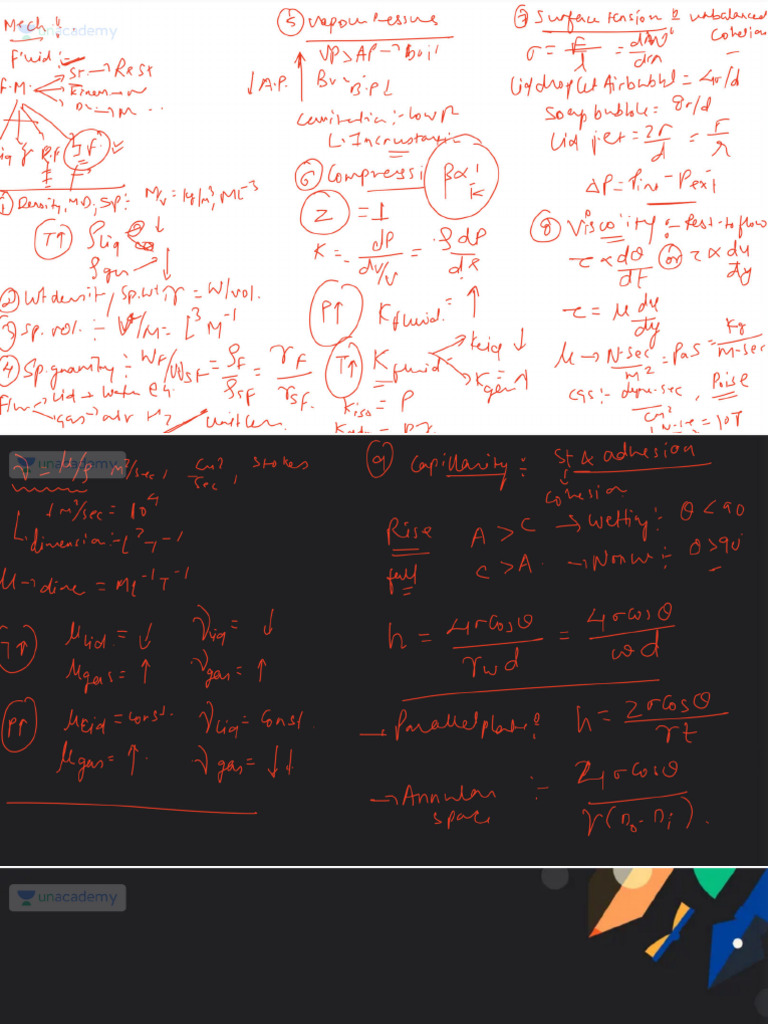 Mech
unacademy
Fluid :-
F.M.
St. → Rest
Kinem →
R.F
I.F.
① Density, M.D, Sp: M/V = kg/m³, ML⁻³
T↑ ρliq ↓
ρgas ↓
② Wt density, Sp. wt, γ = W/vol.
③ Sp. vol. :- V/M = L³ M⁻¹
④ Sp. gravity :- WF/WSF = ρF/ρSF = γF/γSF.
Liq → water
gas → air H₂
Unit less
⑤ Vapour Pressure
VP > AP → Boil
↓ A.P. B.P↓
Cavitation :- low P
⑥ Compressi β α 1/K
Z = 1
K = - dP / dV/V = ρ dP / dρ
P↑ Kfluid = ↑
T↑ Kfluid = Kliq ↓
Kgas ↑
Kiso = P
⑦ Surface tension : unbalanced
Cohesion
σ = F/l = dW/dA
Liq droplet Air bubbl = 4σ/d
Soap bubble = 8σ/d
Liq jet = 2σ/d = σ/r
ΔP = Pint - Pext
⑧ Viscosity :- Rest. to flow
τ ∝ dθ/dt or τ ∝ du/dy
τ = μ du/dy
μ → N-sec/m² = Pas = Kg/m-sec
CGS :- dyne-sec/cm², Poise
unacademy
ν = μ/ρ m²/sec, cm²/sec, stokes
1 m²/sec = 10⁴
dimension :- L² T⁻¹
μ → dime = ML⁻¹T⁻¹
T↑ μliq = ↓ νliq = ↓
μgas = ↑ νgas = ↑
P↑ μliq = const. νliq = const.
μgas = ↑. νgas = ↓↓
⑨ Capillarity :- St & adhesion
Cohesion
Rise A > C → Wetting :- θ < 90
fall C > A. → Nonw :- θ > 90
h = 4σcosθ / γw d = 4σcosθ / ω d
→ Parallel plate : h = 2σcosθ / γt
→ Annular space :- 4σcosθ / γ(Do - Di).
unacademy